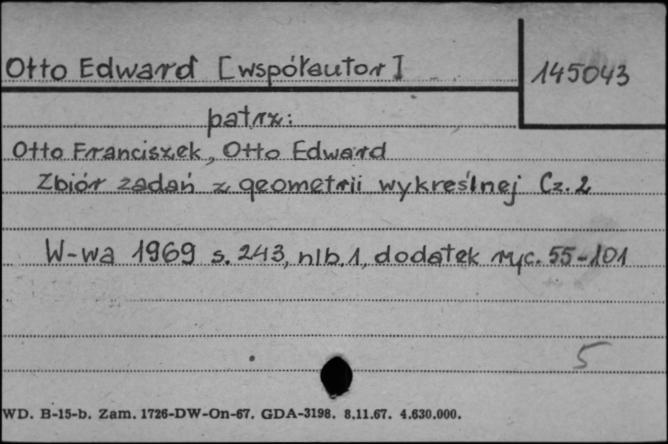 Otto Edward [współautor]
145043
patrz:
Otto Franciszek, Otto Edward
Zbiór zadań z geometrii wykreślnej Cz. 2
W-wa 1969 s. 243, nlb. 1, dodatek ryc. 55-101
5
WD. B-15-b. Zam. 1726-DW-On-67. GDA-3198. 8.11.67. 4.630.000.